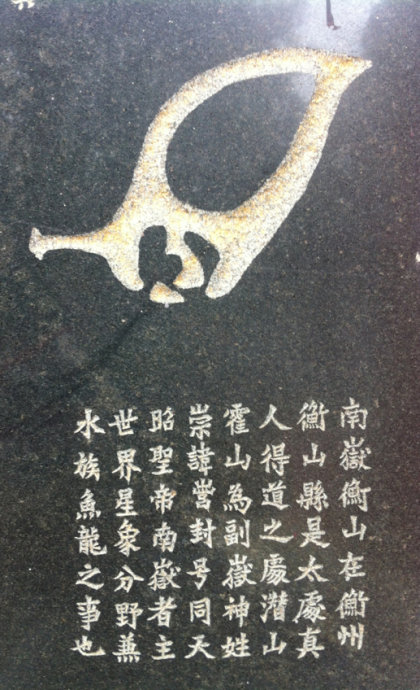 南嶽衡山在衡州
衡山縣是太處真
人得道之處潛山
霍山為副嶽神姓
崇諱嘗封号同天
昭聖帝南嶽者主
世界星象分野兼
水族魚龍之事也